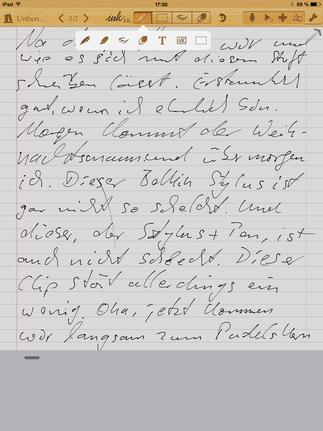 iPad 17:50 50 %
Unben... 2/2 ink
T
wie es sich mit diesem Stift
schreiben lässt. Erstaunlich
gut, wenn ich ehrlich bin.
Morgen kommt der Weih-
nachtsmann und übermorgen
ich. Dieser Belkin Stylus ist
gar nicht so schlecht. Und
dieser, der Stylus + Pen, ist
auch nicht schlecht. Dieser
Clip stört allerdings ein
wenig. Oha, jetzt kommen
wir langsam zum